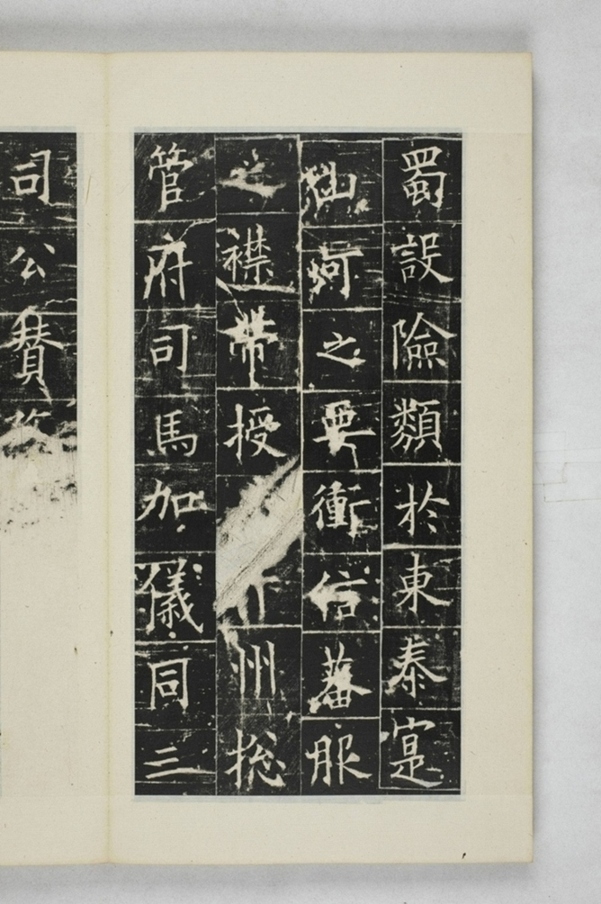 蜀設險類於東秦寔
山河之要衝信蕃服
之襟帶授州揔
管府司馬加儀同三
司公賛